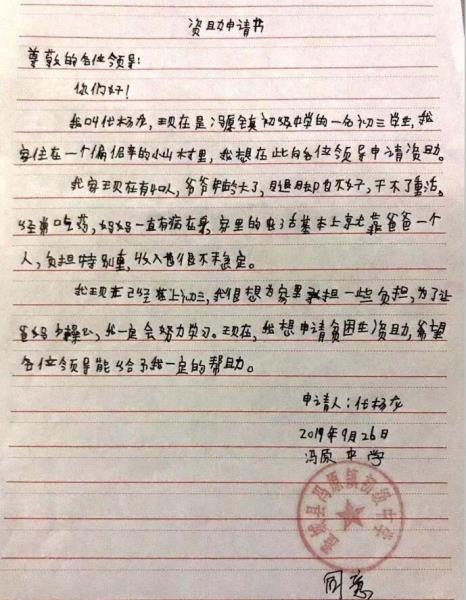 资助申请书
尊敬的各位领导:
你们好!
我叫任杨龙,现在是冯原镇初级中学的一名初三学生,我
家住在一个偏僻的小山村里,我想在此向各位领导申请资助。
我家现在有4口人,爷爷年龄大了,且腿脚也不好,干不了重活,
经常吃药,妈妈一直有病在身,家里的生活基本上都靠爸爸一个
人,负担特别重,收入也很不稳定。
我现在已经在上初三,我很想为家里承担一些负担,为了让
爸妈少操心,我一定会努力学习。现在,我想申请贫困生资助,希望
各位领导能给予我一定的帮助。
申请人:任杨龙
2019年9月26日
冯原中学
澄城县冯原镇初级中学
同意